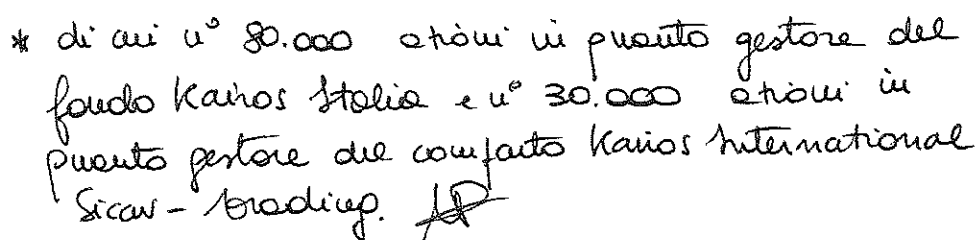 * di cui n° 80.000 azioni in quanto gestore del
fondo Kairos Italia e n° 30.000 azioni in
quanto gestore del comparto Kairos International
Sicav - trading.